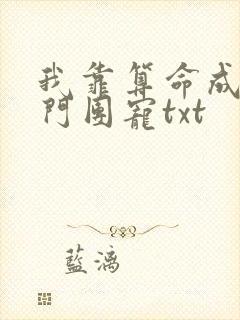 我靠算命成
門團寵txt
藍漓